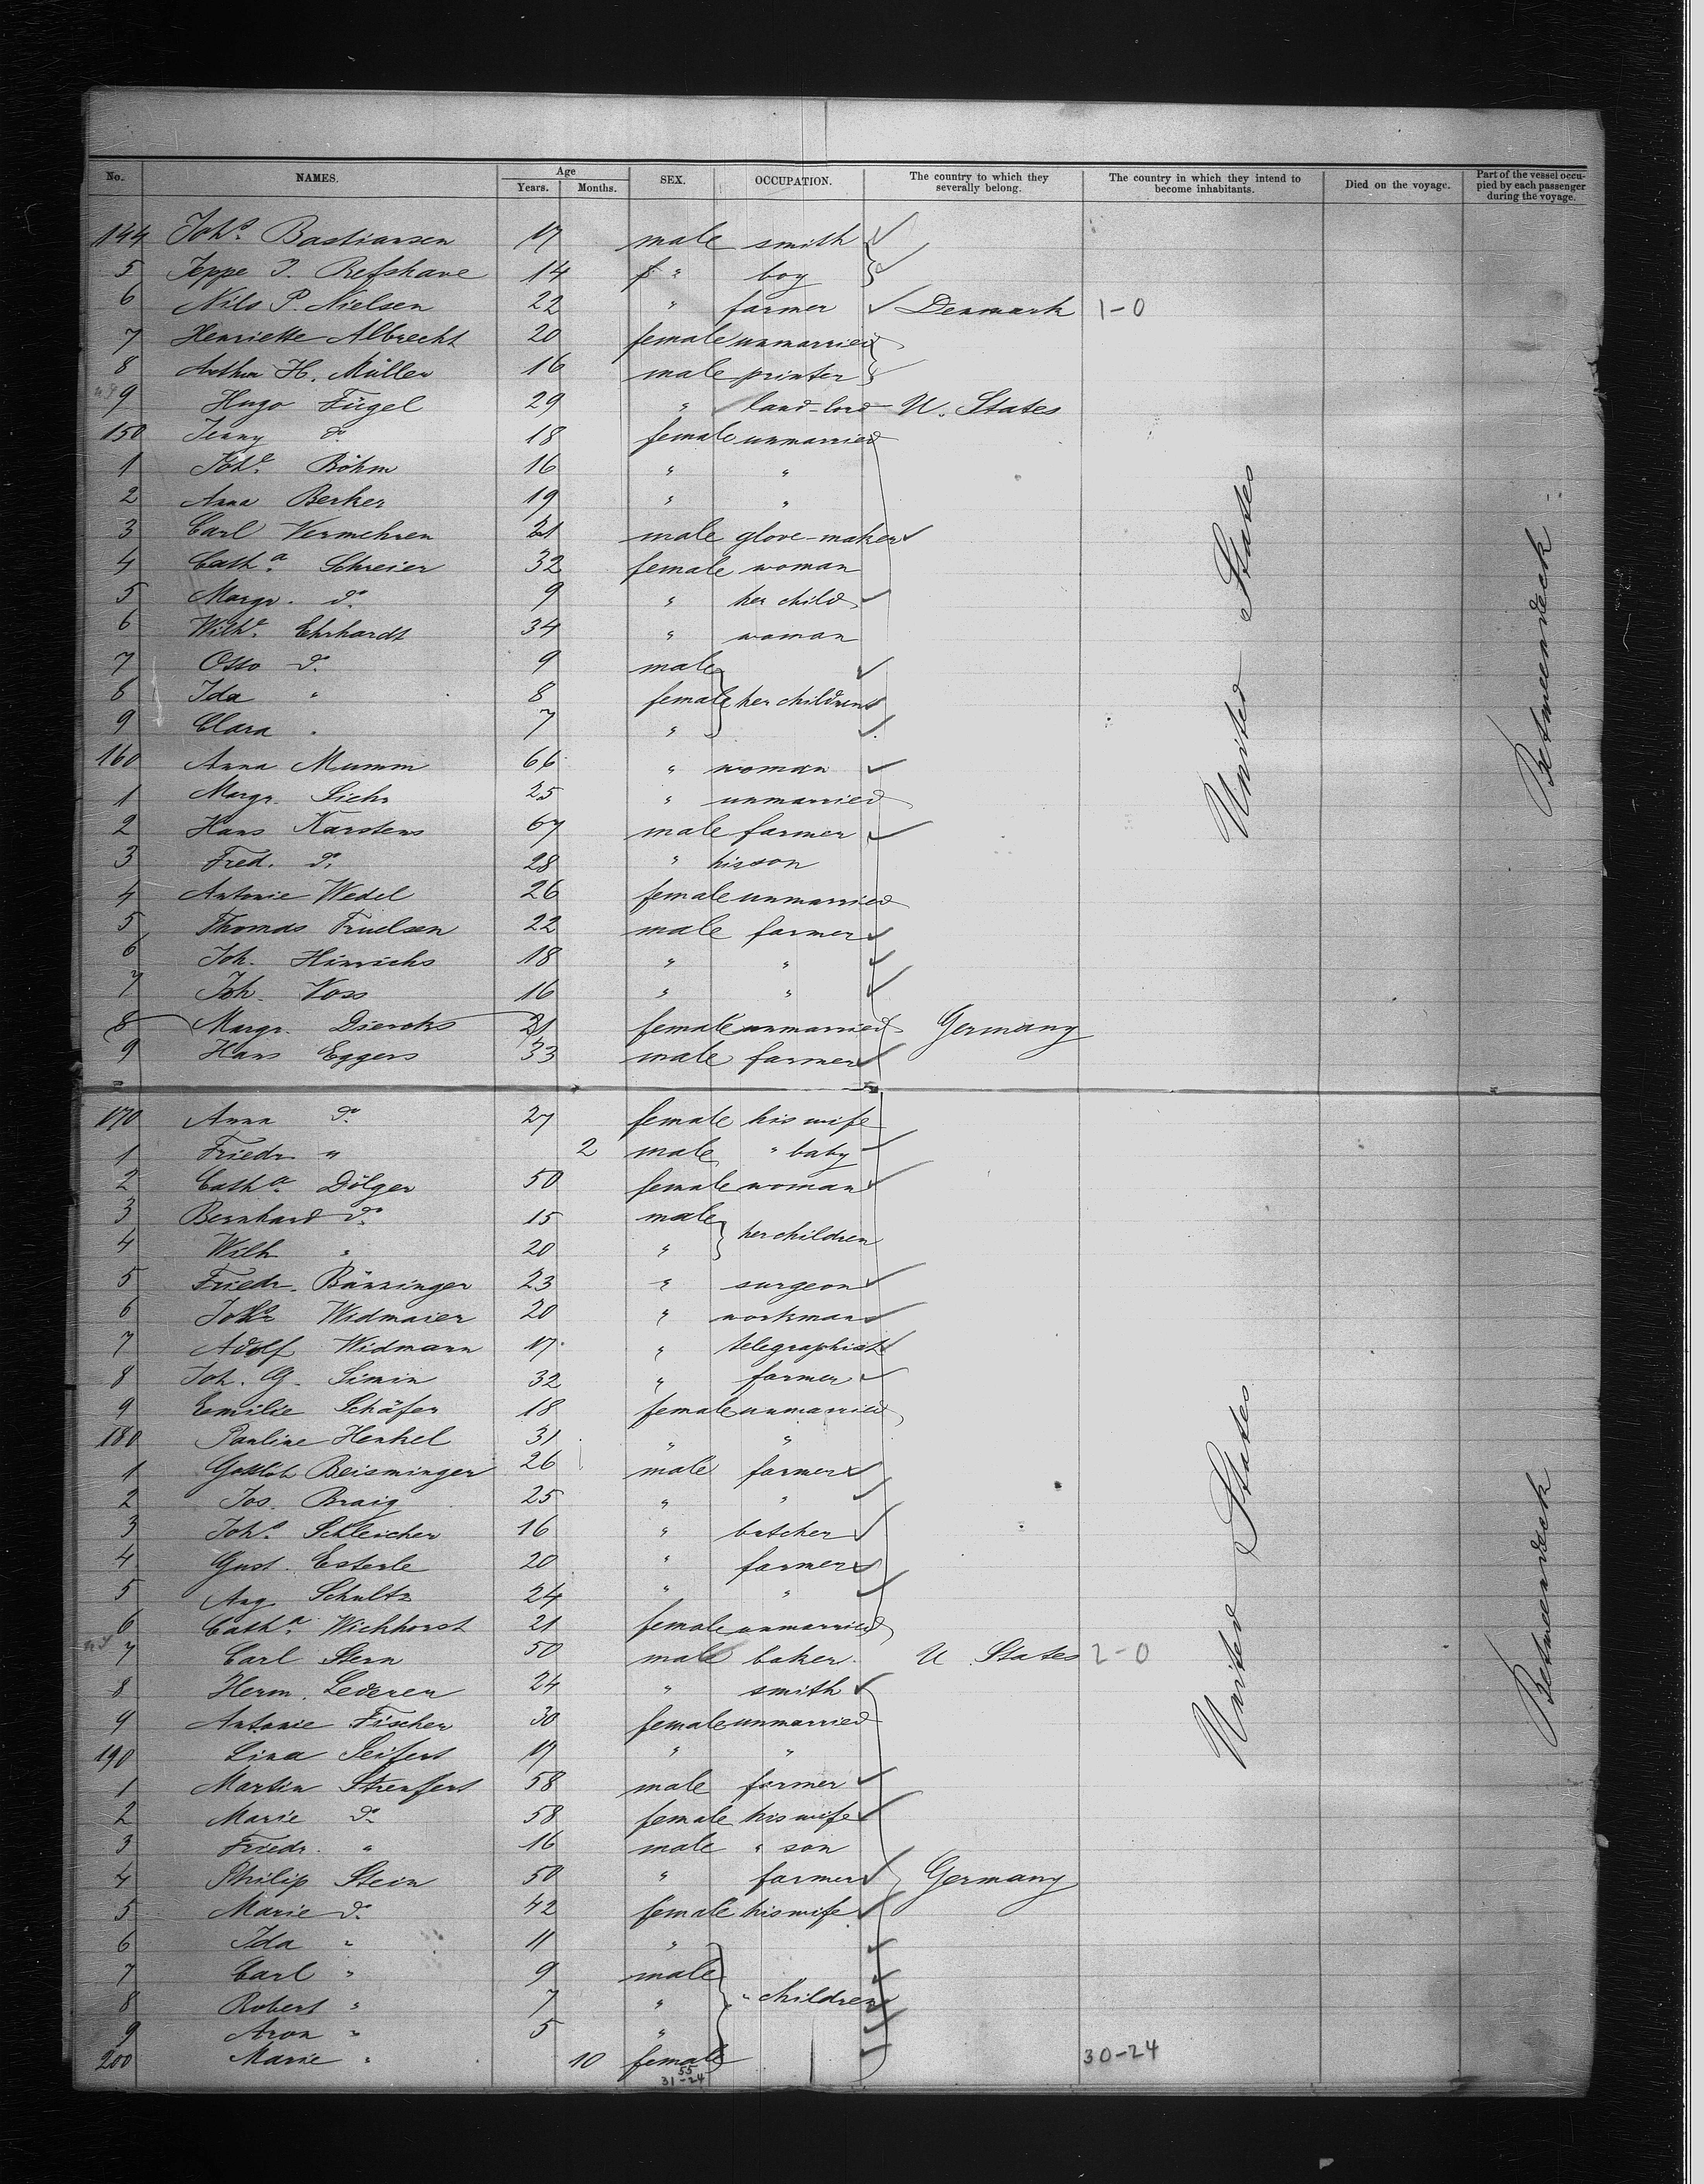 No. NAMES. Age Years. Months. SEX. OCCUPATION. The country to which they severally belong. The country in which they intend to become inhabitants. Died on the voyage. Part of the vessel occupied by each passenger during the voyage.
144 Johs. Bastiansen 17 male smith
5 Jeppe J. Refshave 14 " boy
6 Nils P. Nielsen 22 " farmer Denmark 1-0
7 Henriette Albrecht 20 female unmarried
8 Arthur H. Müller 16 male printer
9 Hugo Fügel 29 " land-lord U. States
150 Jenny do. 18 female unmarried
1 Johe. Böhm 16 " "
2 Anna Berker 19 " "
3 Carl Vermehren 21 male glove-maker
4 Catha. Schreier 32 female woman
5 Margr. do. 9 " her child
6 Wilhe. Ehrhardt 34 " woman
7 Otto do. 9 male
8 Ida " 8 female her children
9 Clara " 7 "
160 Anna Mumm 66 " woman
1 Margr. 25 " unmarried
2 Hans Karstens 67 male farmer
3 Fred. do. 28 " his son
4 Antonie Wedel 26 female unmarried
5 Thomas Truelsen 22 male farmer
6 Joh. Hinrichs 18 " "
7 Joh. Voss 16 " "
8 Margr. Dieroks 21 female unmarried Germany
9 Hans Eggers 33 male farmer
United States Betweendeck
170 Anna do. 27 female his wife
1 Friedr. " 2 male " baby
2 Catha. Dölger 50 female woman
3 Bernhard do. 15 male her children
4 Wilh " 20 "
5 Friedr. Bänzinger 23 " surgeon
6 Johs. Widmaier 20 " workman
7 Adolf Widmann 17 " telegraphist
8 Joh. G. Simin 32 " farmer
9 Emilie Schäfer 18 female unmarried
180 Pauline Henkel 31 " "
1 Gottlob Beisminger 26 male farmer
2 Jos. Braig 25 " "
3 Johs. Schleicher 16 " butcher
4 Gust. Esterle 20 " farmer
5 Aug. Schultz 24 " "
6 Catha. Wichhorst 21 female unmarried
7 Carl Stern 50 male baker U. States 2-0
8 Herm. Lederer 24 " smith
9 Antonie Fischer 30 female unmarried
190 Lina Seifert 17 " "
1 Martin 58 male farmer
2 Marie do. 58 female his wife
3 Friedr. " 16 male " son
4 Philip Stein 50 " farmer Germany
5 Marie do. 42 female his wife
6 Ida " 11 "
7 Carl " 9 male
8 Robert " 7 " " children
9 Aron " 5 "
200 Marie " 10 female 30-24
55
31-24
United States Betweendeck